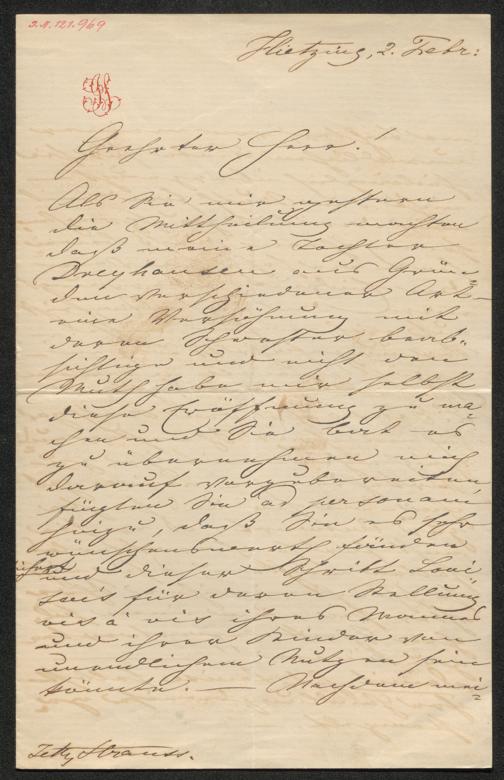 J.N. 121.969
Hietzing, 2. Febr:
Geehrter Herr!
Als Sie mir gestern
die Mittheilung machten
daß meine Tochter
Dreyhausen aus Grün-
den verschiedener Art –
eine Versöhnung mit
deren Schwester beab-
sichtige und nicht den
Muth habe mir selbst
diese Eröffnung zu ma-
chen und Sie bat es
zu übernehmen mich
darauf vorzubereiten,
fügten Sie ad personam
hinzu, daß Sie es sehr
wünschenswerth fänden
und dieser Schritt Loui-
sens für deren Stellung
vis à vis ihres Mannes
und ihrer Kinder von
unendlichem Nutzen sein
könnte. — Nachdem mei-
Jetty Strauss.